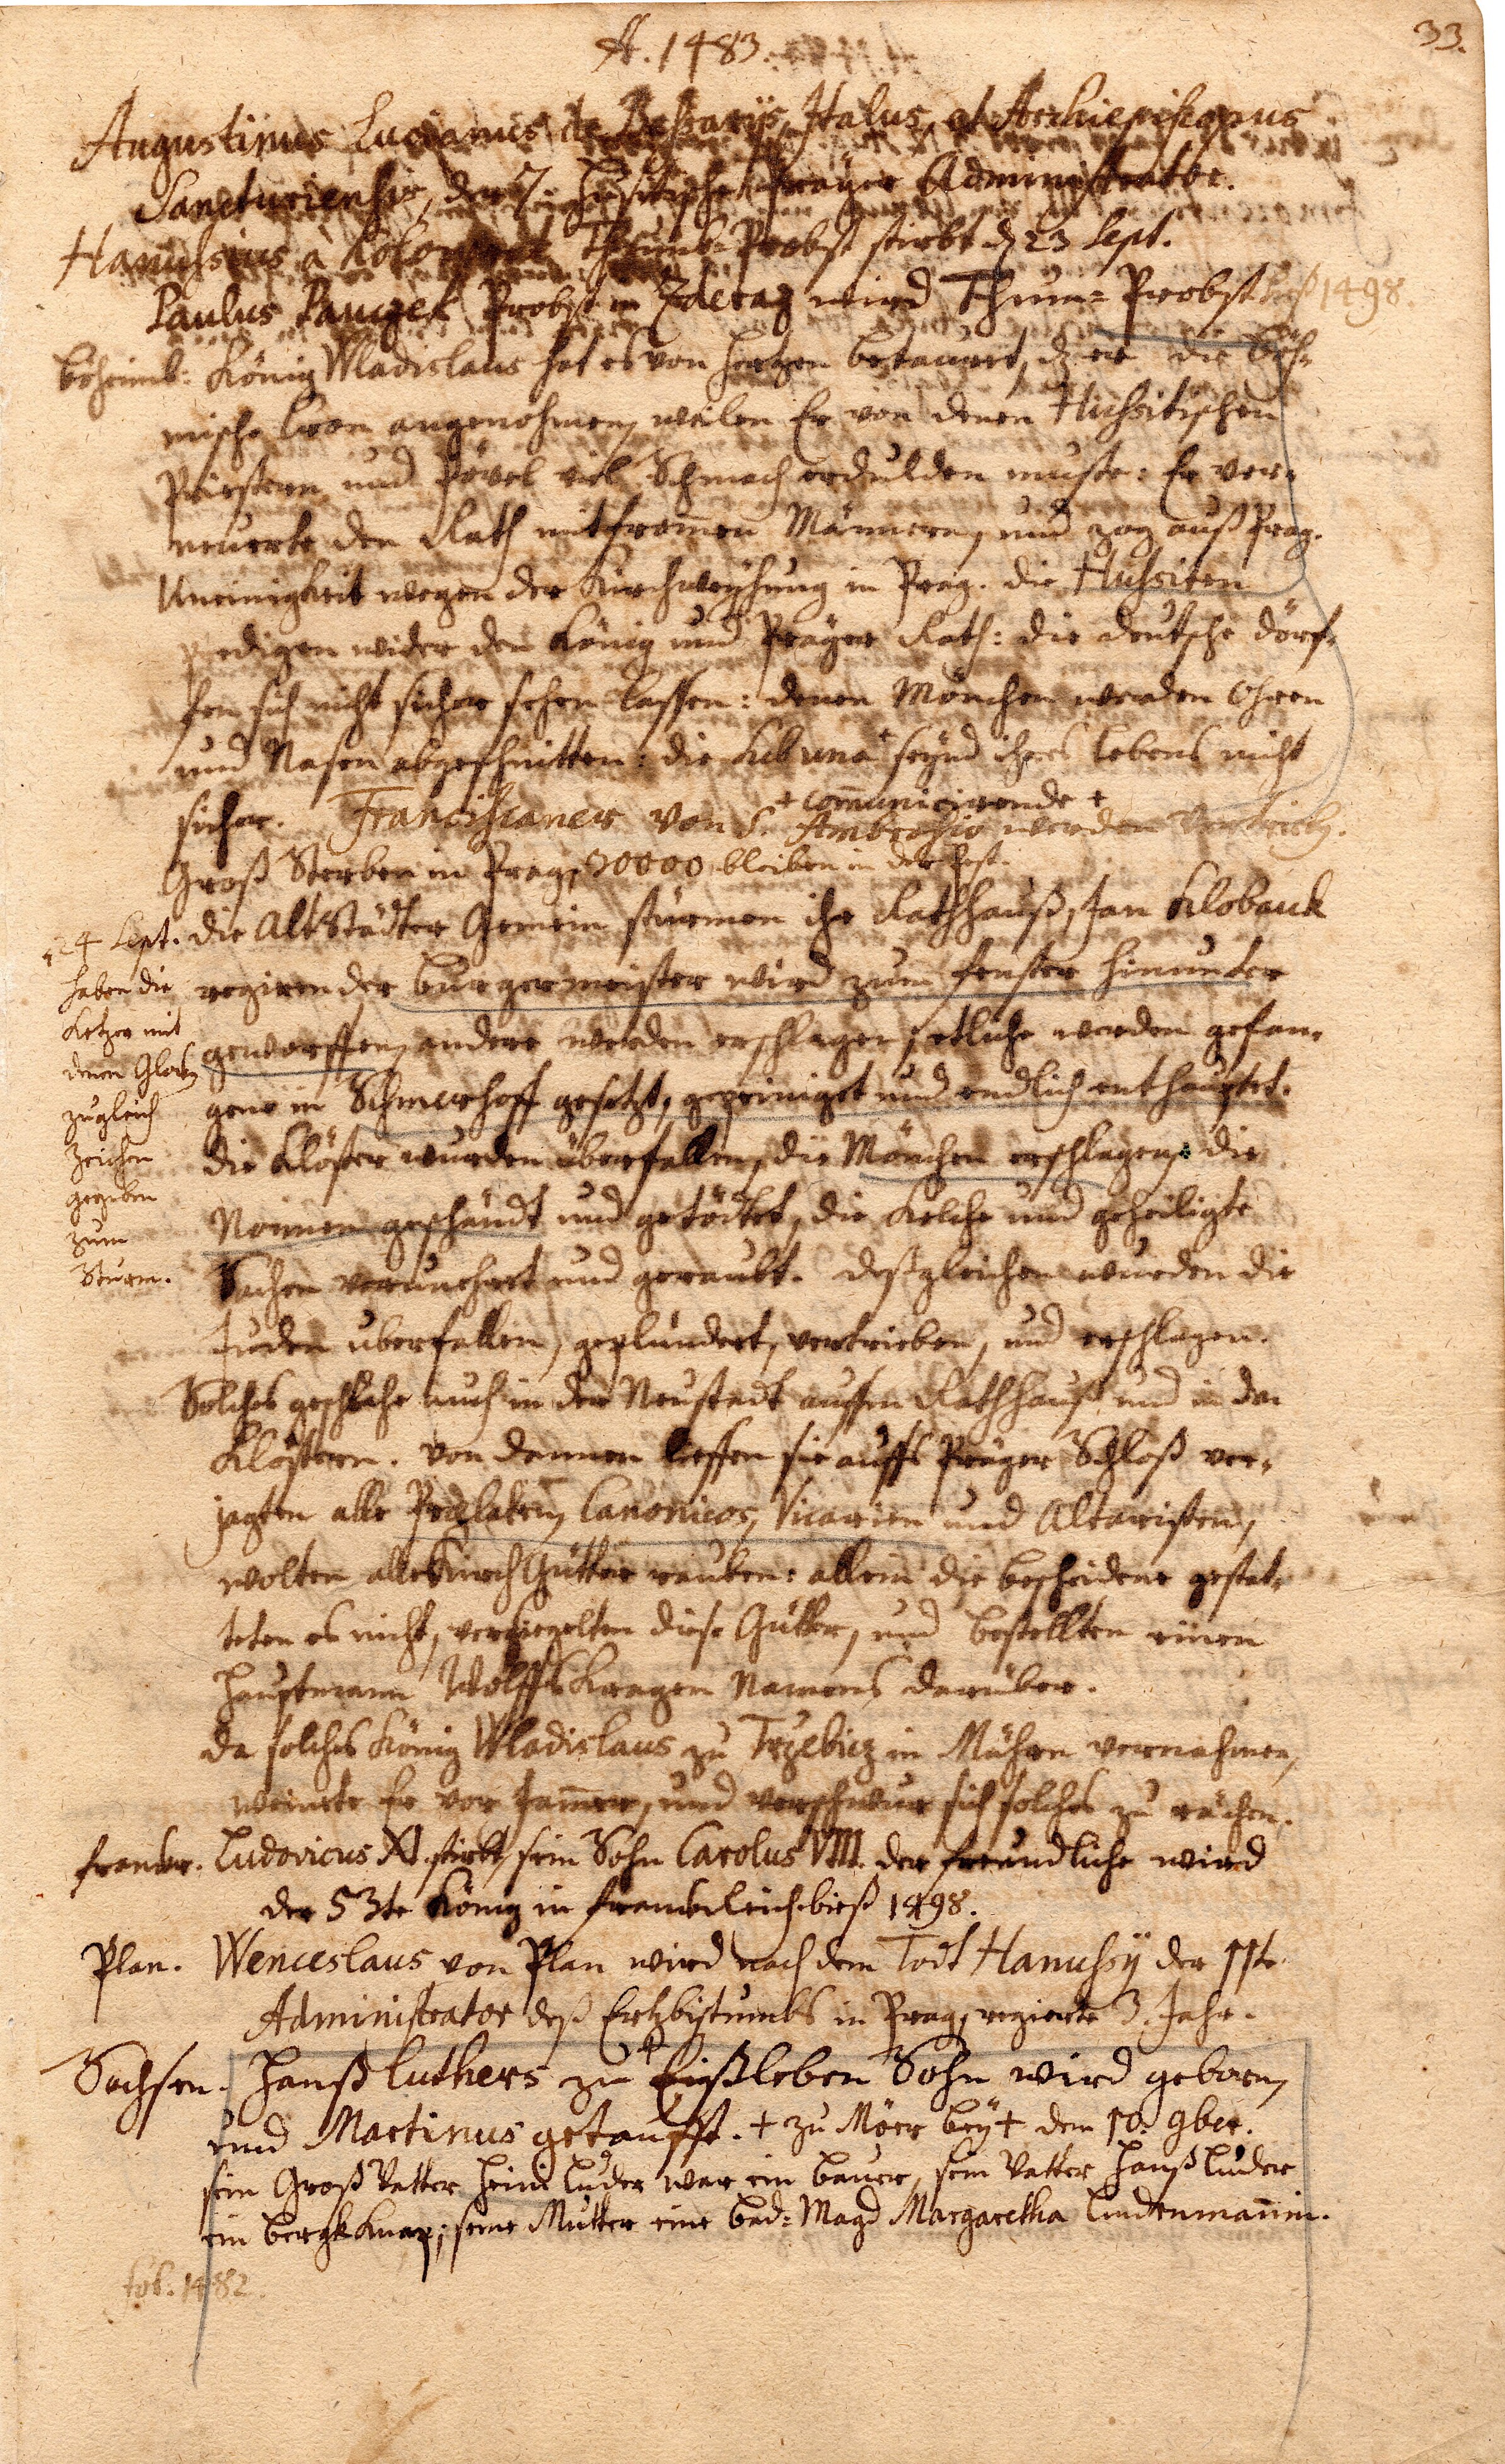 33.
A. 1483.
Augustinus Lucianus de Bessarijs, Italus, et Archiepiscopus
Sancturiensis, der 7. Hussitische Präger Administrator.
Hanussius à Kolowrat Thumb-Probst stirbt d 23 Sept.
Paulus Pauczek Probst in Zderaz wird Thum-Probst biß 1498.
Böheimb: König Wladislaus hat es von Hertzen betauert, dz er die Böh-
mische Cron angenohmen, weilen Er von denen Hussitischen
Priestern und Pövel viel Schmach erdulden muste: Er ver-
neuerte den Rath mit from̄en Männern, und zog auß Prag.
Uneinigkeit wegen der Kirchweÿhung in Prag. die Hussiten
predigen wider den König und Präger Rath: die deutsche dörf-
fen sich nicht sicher sehen lassen: denen Mönchen werden Ohren
und Nasen abgeschnitten: die sub una + seÿnd ihres lebens nicht
+ com̄unicirende +
sicher. Franciscaner von S. Ambrosio werden vertrieb.
Groß Sterben in Prag, 30000 bleiben in der Pest.
24 Sept. die AltStädter Gemein stürmen ihr Rathhauß, Jan Klobauk
haben die regirender burgermeister wird zum fenster hinunter
Ketzer mit
denen Glock geworffen, andere werden erschlagen; etliche werden gefan-
zugleich gene in Schmerhoff gesetzt, gepeiniget und endlich enthauptet.
Zeichen die Klöster wurden überfallen, die Mönchen erschlagen, die
gegeben
zum Nonnen geschändt und getödtet, die Kelche und geheiligte
Sturm. Sachen verunehrt und geraubt. deßgleichen wurden die
Juden uberfallen, geplündert, vertrieben, und erschlagen.
Solches geschahe auch in der Neustadt auffen Rathhauß und in den
Klöstern. von dannen lieffen sie auffs Präger Schloß ver-
jagten alle Prælaten, Canonicos, Vicarien und Altaristen,
wolten alle Kirch Gütter rauben: allein die bescheidene gestat-
teten es nicht, versiegelten diese Gütter, und bestellten einen
Hauptmann Wolffs Kragen Namens darüber.
Da solches König Wladislaus zu Trzebicz in Mähren vernahmen,
weinete Er vor Jam̄er, und verschwur sich solches zu rächen.
franckr. Ludovicus XI. stirbt, sein Sohn Carolus VIII. der freundliche wird
der 53te König in franckreich biß 1498.
Plan. Wenceslaus von Plan wird nach dem Todt Hanussÿ der 11te
Administrator deß Ertzbistumbs in Prag, regierte 3. Jahr.
Sachsen. Hanß Luthers zu + Eißleben Sohn wird geborn,
und Martinus getaufft. + zu Mörr beÿ + dem 10. 9ber.
sein Groß Vatter Heine Luder war ein bauer, sein Vatter Hanß Luder
ein bergkKnap; seine Mutter eine bad-Magd Margaretha Lindenman̄in.
1482.